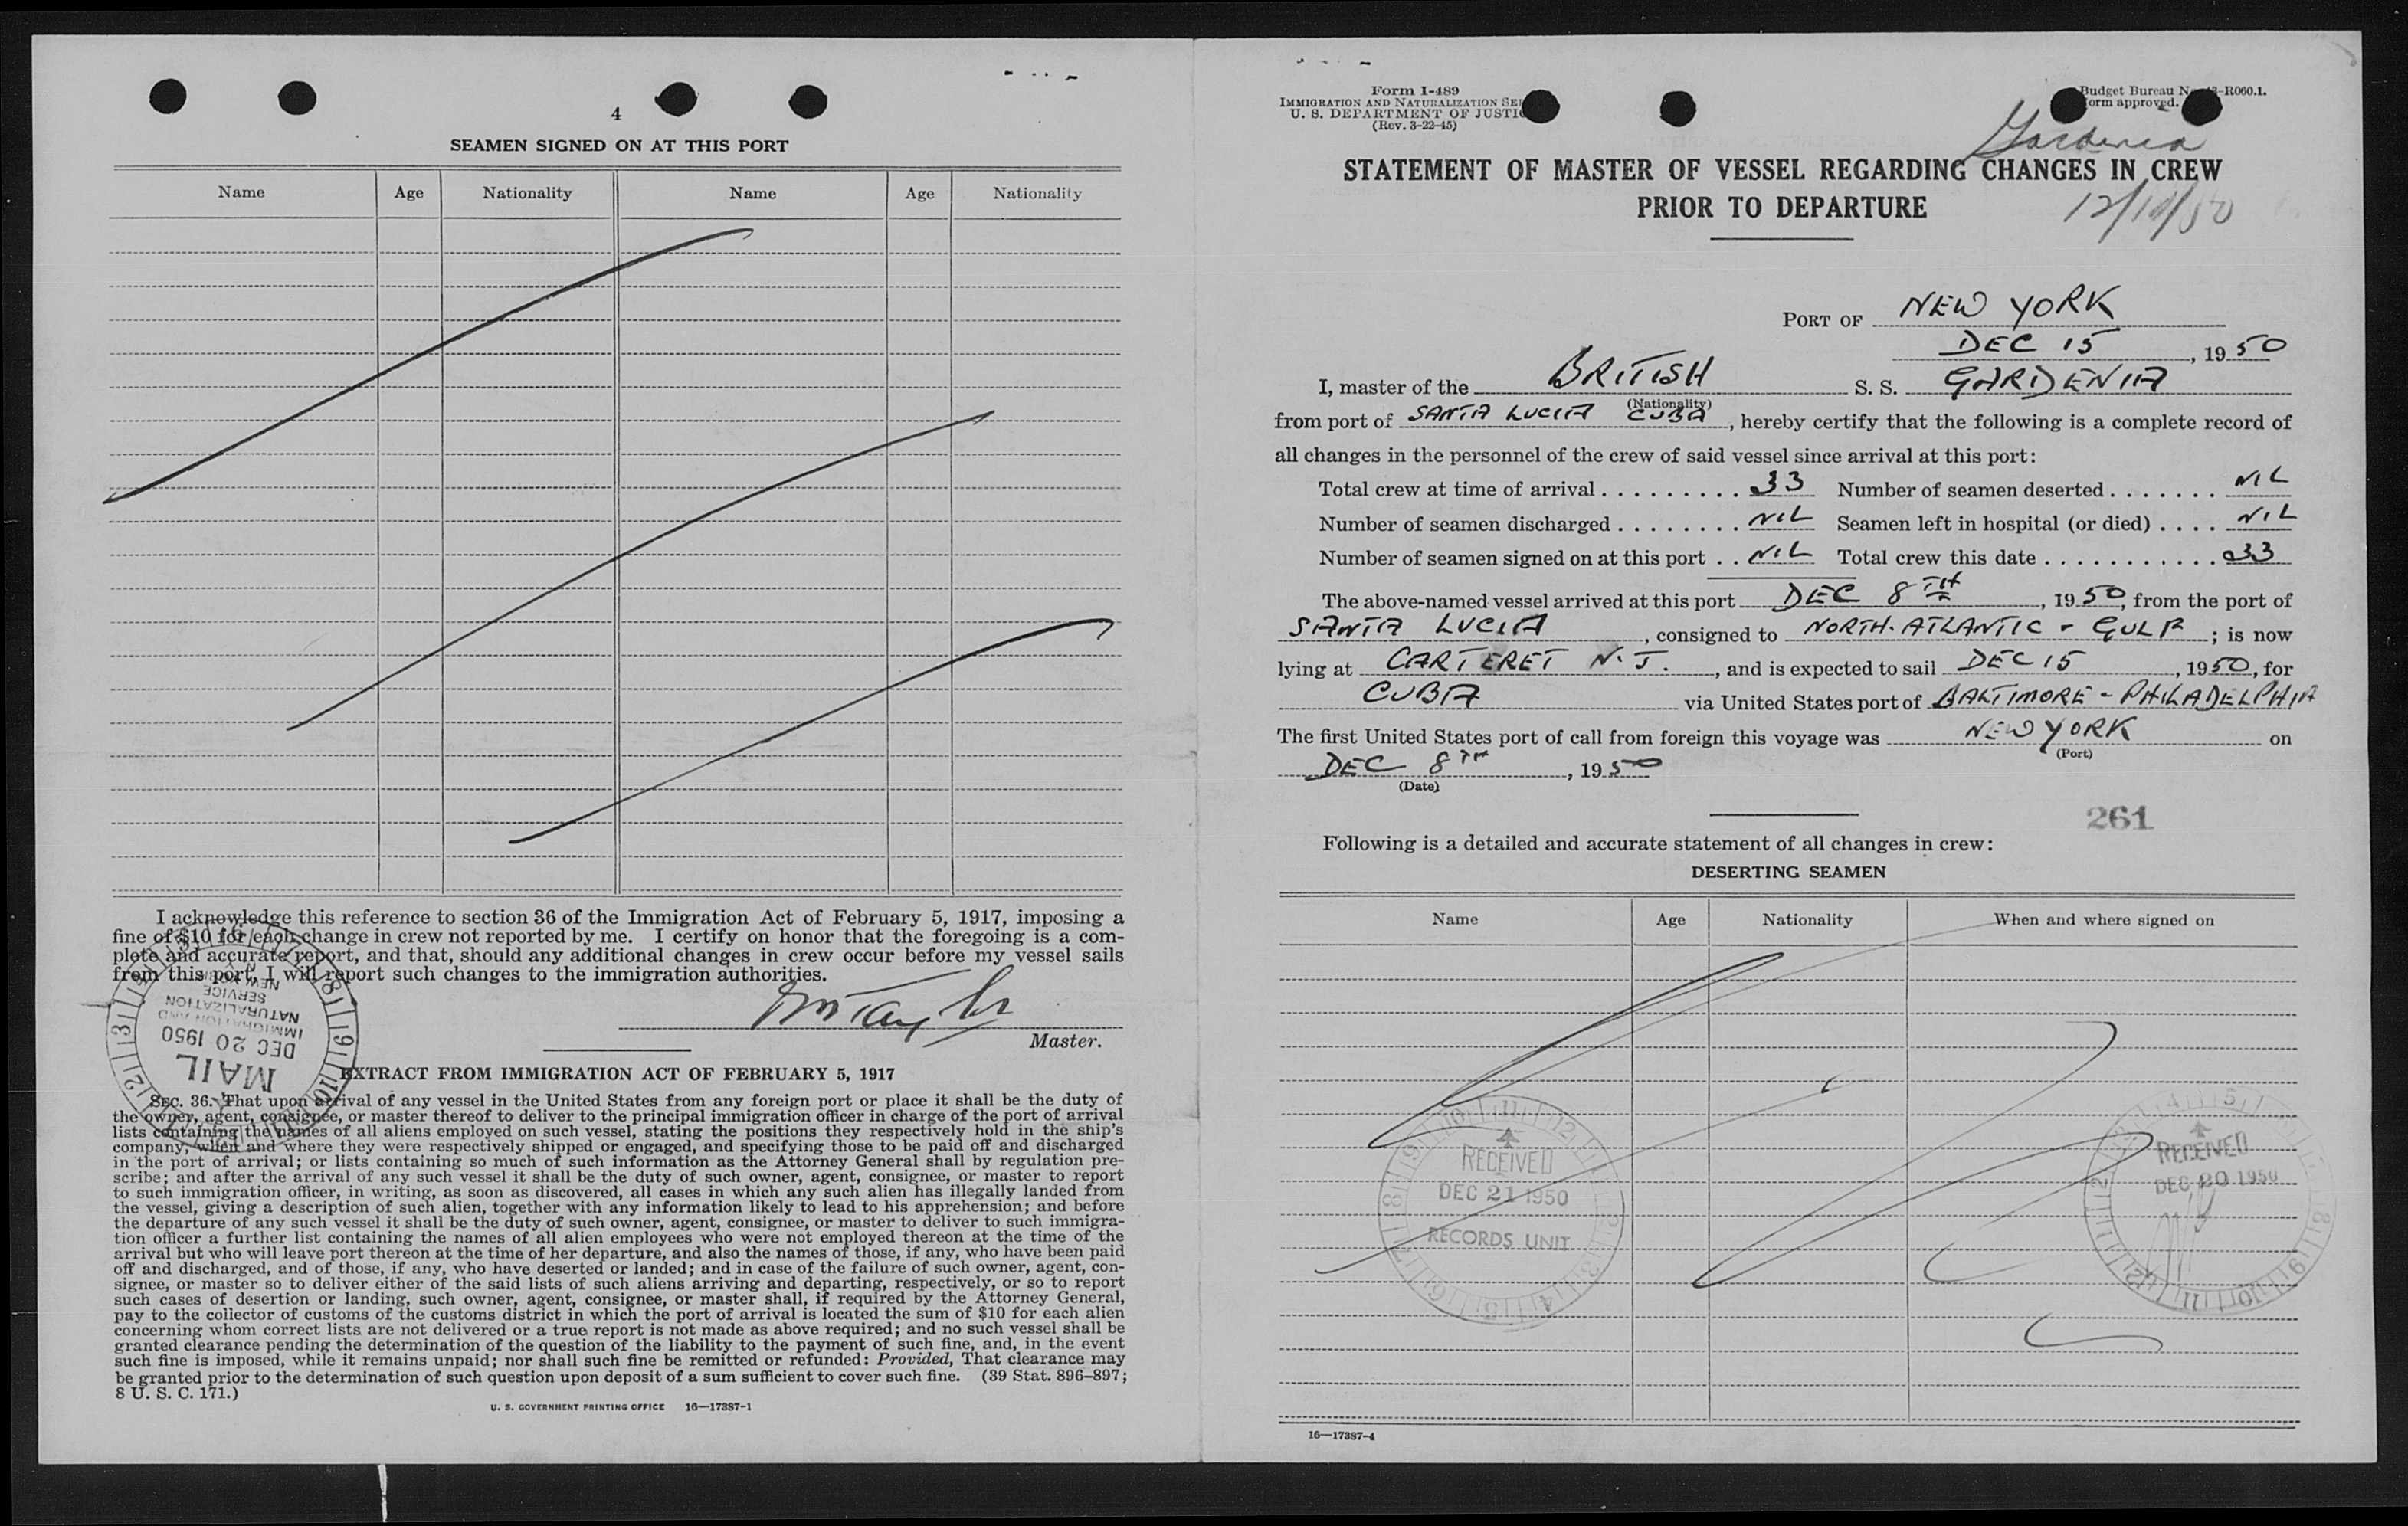 4
SEAMEN SIGNED ON AT THIS PORT
Name Age Nationality Name Age Nationality
I acknowledge this reference to section 36 of the Immigration Act of February 5, 1917, imposing a
fine of $10 for each change in crew not reported by me. I certify on honor that the foregoing is a com-
plete and accurate report, and that, should any additional changes in crew occur before my vessel sails
from this port, I will report such changes to the immigration authorities.
Master.
MAIL
DEC 20 1950
IMMIGRATION AND
NATURALIZATION
SERVICE
NEW YORK
EXTRACT FROM IMMIGRATION ACT OF FEBRUARY 5, 1917
SEC. 36. That upon arrival of any vessel in the United States from any foreign port or place it shall be the duty of
the owner, agent, consignee, or master thereof to deliver to the principal immigration officer in charge of the port of arrival
lists containing the names of all aliens employed on such vessel, stating the positions they respectively hold in the ship's
company, when and where they were respectively shipped or engaged, and specifying those to be paid off and discharged
in the port of arrival; or lists containing so much of such information as the Attorney General shall by regulation pre-
scribe; and after the arrival of any such vessel it shall be the duty of such owner, agent, consignee, or master to report
to such immigration officer, in writing, as soon as discovered, all cases in which any such alien has illegally landed from
the vessel, giving a description of such alien, together with any information likely to lead to his apprehension; and before
the departure of any such vessel it shall be the duty of such owner, agent, consignee, or master to deliver to such immigra-
tion officer a further list containing the names of all alien employees who were not employed thereon at the time of the
arrival but who will leave port thereon at the time of her departure, and also the names of those, if any, who have been paid
off and discharged, and of those, if any, who have deserted or landed; and in case of the failure of such owner, agent, con-
signee, or master so to deliver either of the said lists of such aliens arriving and departing, respectively, or so to report
such cases of desertion or landing, such owner, agent, consignee, or master shall, if required by the Attorney General,
pay to the collector of customs of the customs district in which the port of arrival is located the sum of $10 for each alien
concerning whom correct lists are not delivered or a true report is not made as above required; and no such vessel shall be
granted clearance pending the determination of the question of the liability to the payment of such fine, and, in the event
such fine is imposed, while it remains unpaid; nor shall such fine be remitted or refunded: Provided, That clearance may
be granted prior to the determination of such question upon deposit of a sum sufficient to cover such fine. (39 Stat. 896–897;
8 U. S. C. 171.)
U. S. GOVERNMENT PRINTING OFFICE 16—17387-1
Form I-489
IMMIGRATION AND NATURALIZATION
U. S. DEPARTMENT OF JUSTIC
(Rev. 3-22-45)
Budget Bureau -R060.1.
orm approved.
Gardenia
STATEMENT OF MASTER OF VESSEL REGARDING CHANGES IN CREW
PRIOR TO DEPARTURE
PORT OF NEW YORK
DEC 15, 1950
I, master of the BRITISH S. S. GARDENIA
(Nationality)
from port of SANTA LUCIA CUBA, hereby certify that the following is a complete record of
all changes in the personnel of the crew of said vessel since arrival at this port:
Total crew at time of arrival . . . . . . . . . . 33 Number of seamen deserted . . . . . . . NIL
Number of seamen discharged . . . . . . . . NIL Seamen left in hospital (or died) . . . . NIL
Number of seamen signed on at this port . . NIL Total crew this date . . . . . . . . . . . 33
The above-named vessel arrived at this port DEC 8TH, 1950, from the port of
SANTA LUCIA, consigned to NORTH-ATLANTIC - GULF; is now
lying at CARTERET N.J., and is expected to sail DEC 15, 1950, for
CUBA via United States port of BALTIMORE - PHILADELPHIA
The first United States port of call from foreign this voyage was NEW YORK on
(Port)
DEC 8TH, 1950
(Date)
261
Following is a detailed and accurate statement of all changes in crew:
DESERTING SEAMEN
Name Age Nationality When and where signed on
RECEIVED
DEC 21 1950
RECORDS UNIT
RECEIVED
DEC 20 1950
16—17387-4